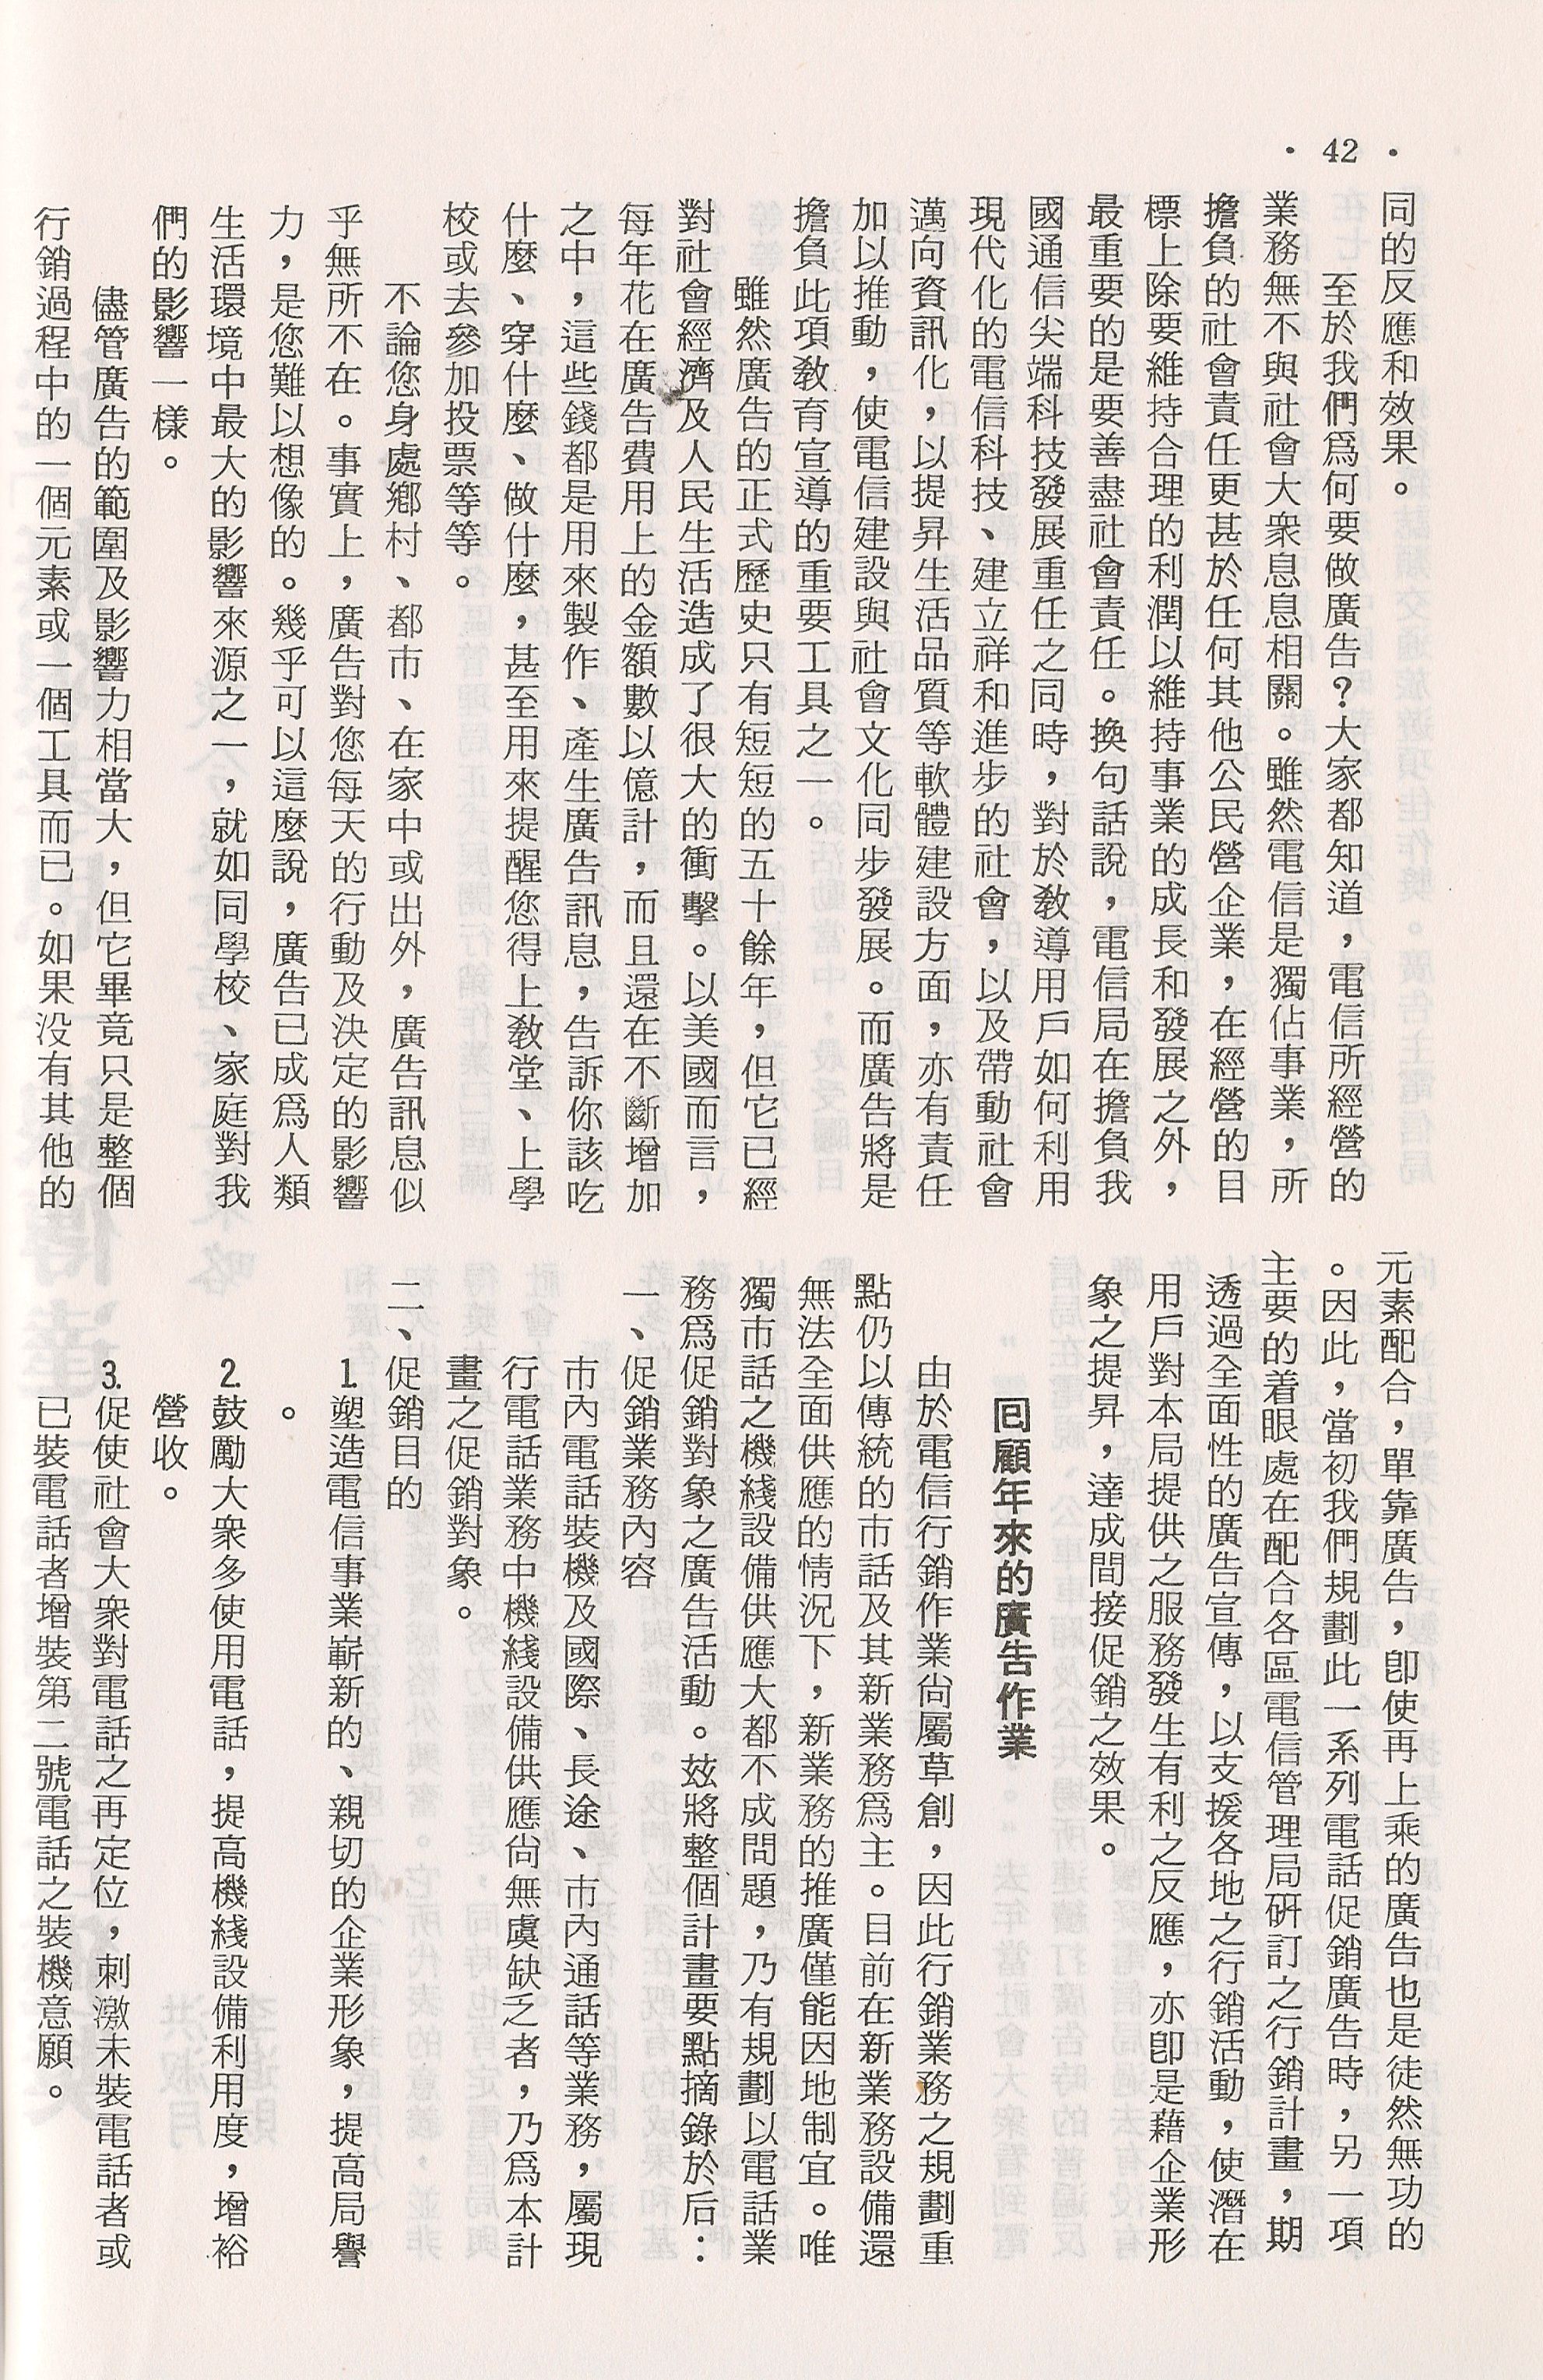 • 42 •
同的反應和效果。
至於我們爲何要做廣告?大家都知道，電信所經營的
業務無不與社會大衆息息相關。雖然電信是獨佔事業，所
擔負的社會責任更甚於任何其他公民營企業，在經營的目
標上除要維持合理的利潤以維持事業的成長和發展之外，
最重要的是要善盡社會責任。換句話說，電信局在擔負我
國通信尖端科技發展重任之同時，對於教導用戶如何利用
現代化的電信科技、建立祥和進步的社會，以及帶動社會
邁向資訊化，以提昇生活品質等軟體建設方面，亦有責任
加以推動，使電信建設與社會文化同步發展。而廣告將是
擔負此項教育宣導的重要工具之一。
雖然廣告的正式歷史只有短短的五十餘年，但它已經
對社會經濟及人民生活造成了很大的衝擊。以美國而言，
每年花在廣告費用上的金額數以億計，而且還在不斷增加
之中，這些錢都是用來製作、產生廣告訊息，告訴你該吃
什麼、穿什麼、做什麼，甚至用來提醒您得上教堂、上學
校或去參加投票等等。
不論您身處鄉村、都市、在家中或出外，廣告訊息似
乎無所不在。事實上，廣告對您每天的行動及決定的影響
力，是您難以想像的。幾乎可以這麼說，廣告已成爲人類
生活環境中最大的影響來源之一，就如同學校、家庭對我
們的影響一樣。
儘管廣告的範圍及影響力相當大，但它畢竟只是整個
行銷過程中的一個元素或一個工具而已。如果没有其他的
元素配合，單靠廣告，卽使再上乘的廣告也是徒然無功的
。因此，當初我們規劃此一系列電話促銷廣告時，另一項
主要的着眼處在配合各區電信管理局硏訂之行銷計畫，期
透過全面性的廣告宣傳，以支援各地之行銷活動，使潛在
用戶對本局提供之服務發生有利之反應，亦卽是藉企業形
象之提昇，達成間接促銷之效果。
回顧年來的廣告作業
由於電信行銷作業尙屬草創，因此行銷業務之規劃重
點仍以傳統的市話及其新業務爲主。目前在新業務設備還
無法全面供應的情況下，新業務的推廣僅能因地制宜。唯
獨市話之機綫設備供應大都不成問題，乃有規劃以電話業
務爲促銷對象之廣告活動。玆將整個計畫要點摘錄於后：
一、促銷業務內容
市內電話裝機及國際、長途、市內通話等業務，屬現
行電話業務中機綫設備供應尙無虞缺乏者，乃爲本計
畫之促銷對象。
二、促銷目的
1.塑造電信事業嶄新的、親切的企業形象，提高局譽
。
2.鼓勵大衆多使用電話，提高機綫設備利用度，增裕
營收。
3.促使社會大衆對電話之再定位，刺激未裝電話者或
已裝電話者增裝第二號電話之裝機意願。